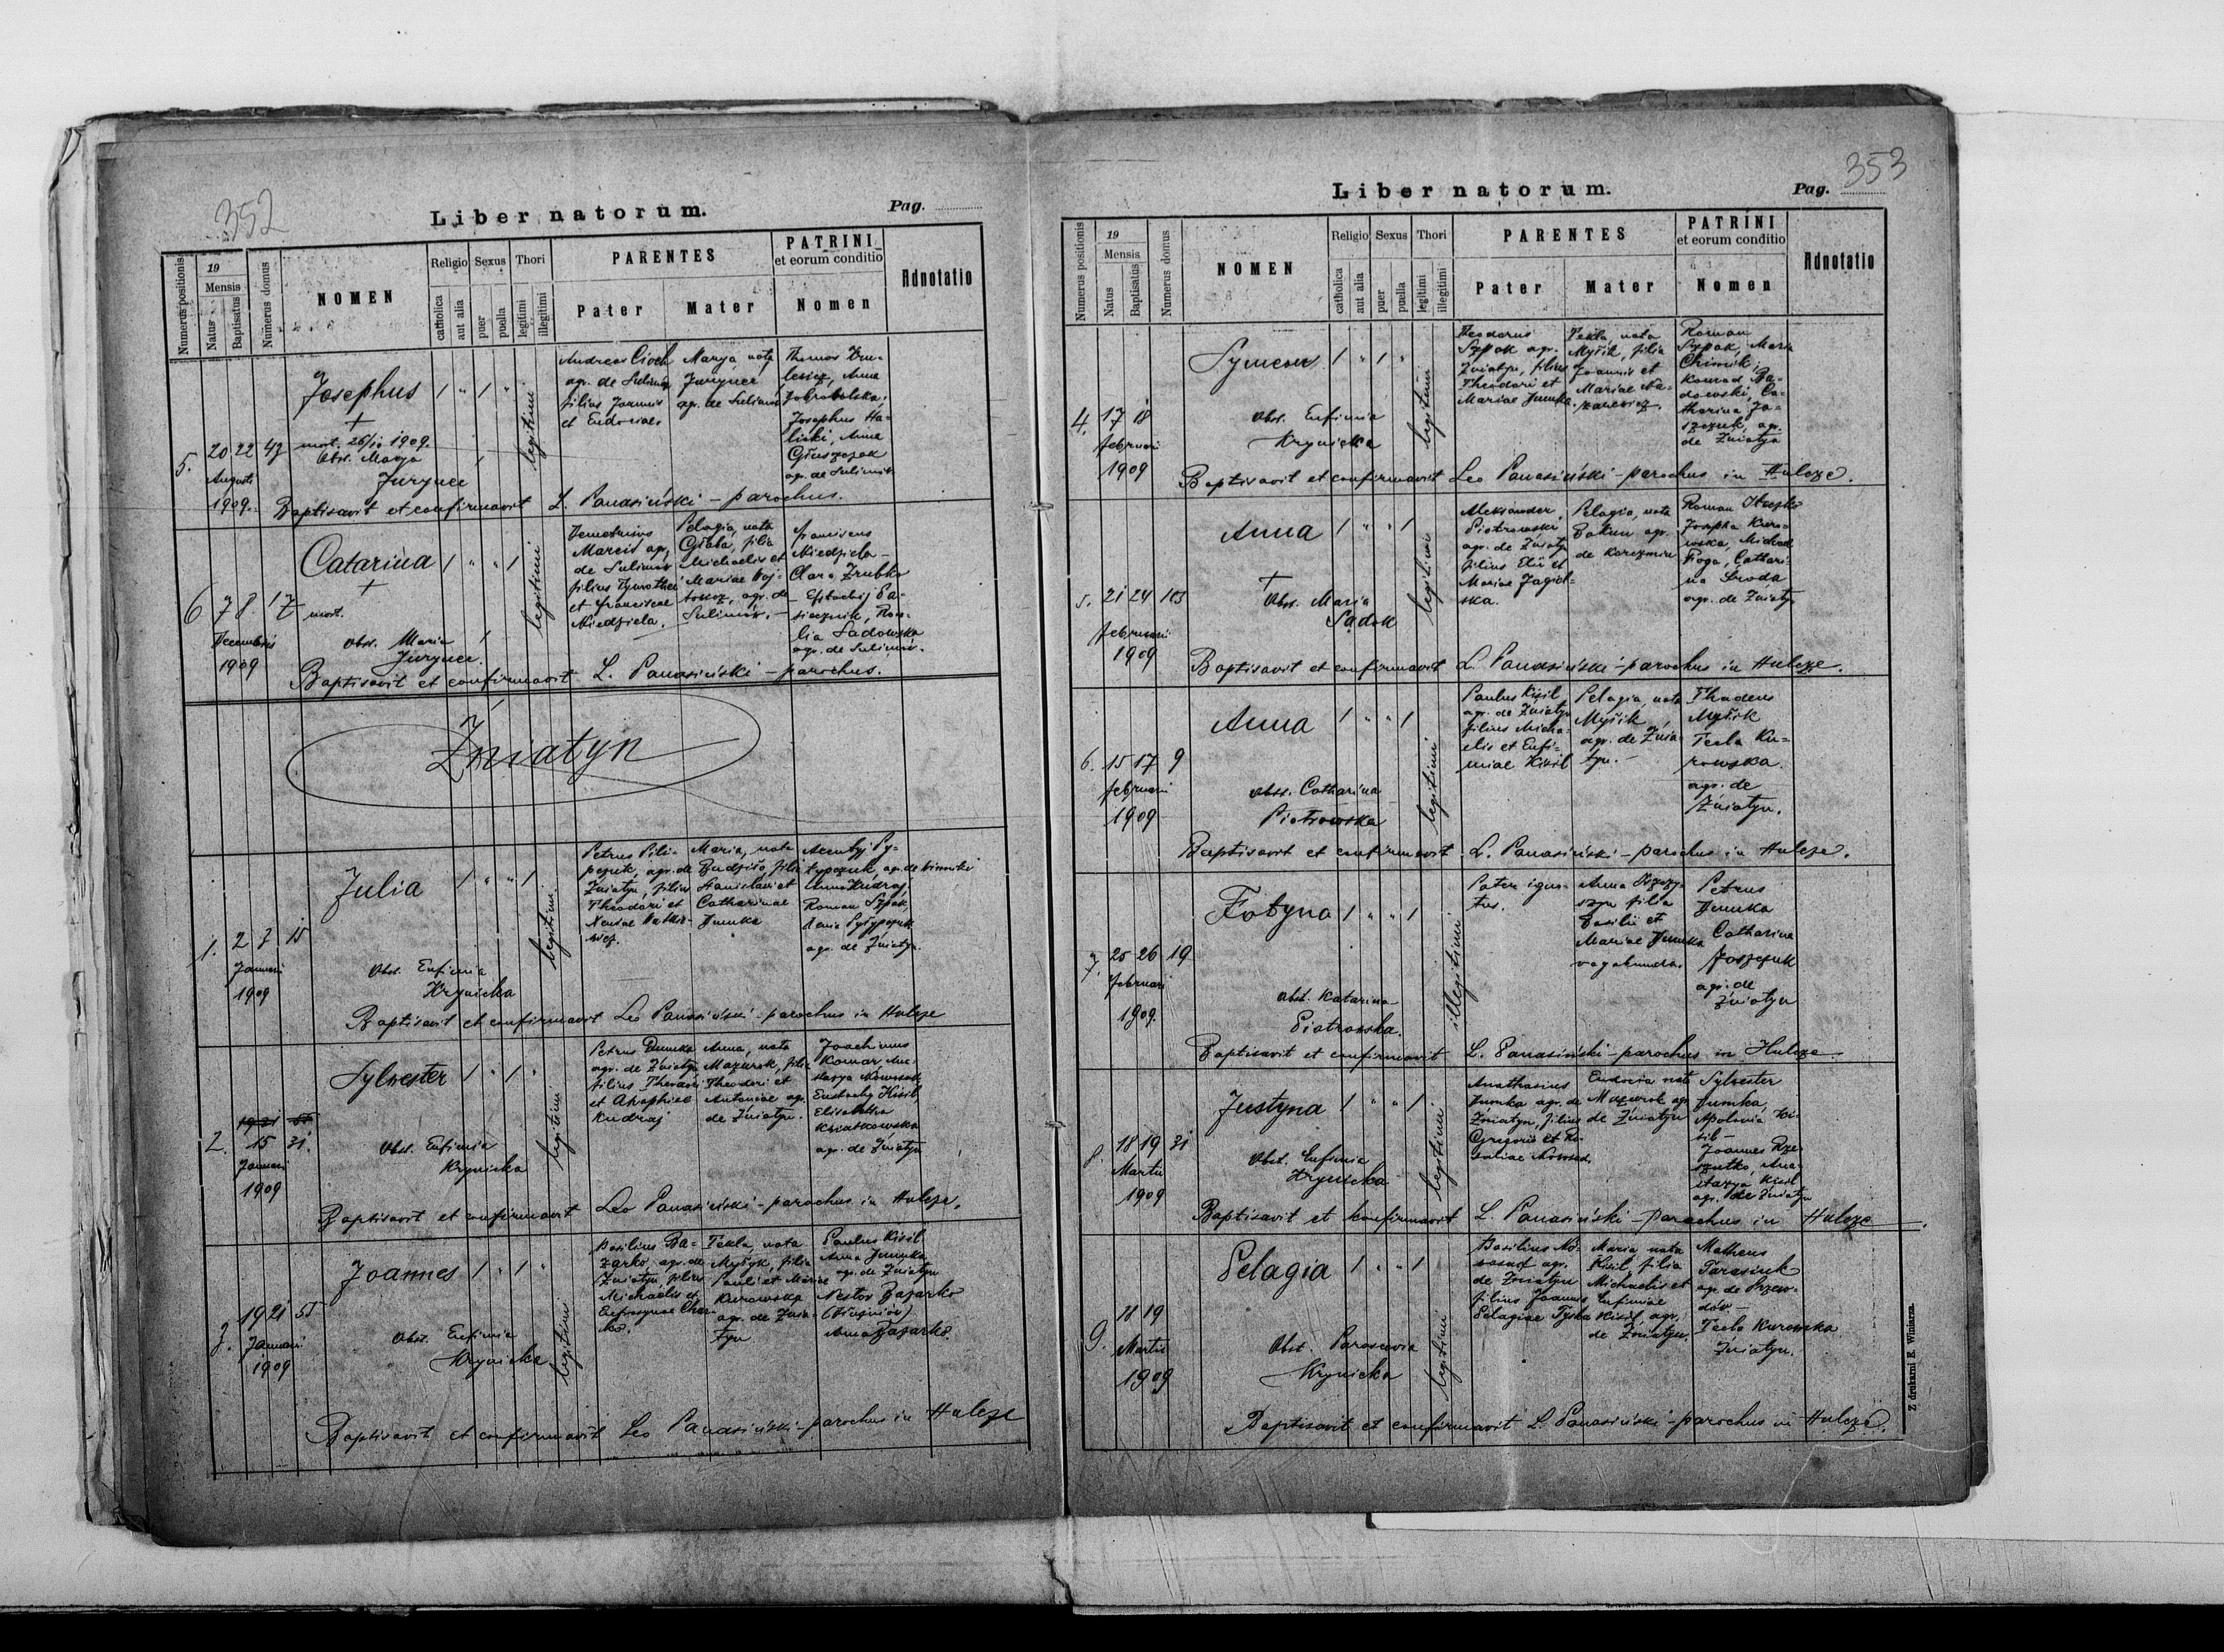 352
Liber natorum.
Pag.
Numerus positionis
19
Mensis
Natus
Baptisatus
Numerus domus
NOMEN
Religio
catholica
aut alia
Sexus
puer
puella
Thori
legitimi
illegitimi
PARENTES
Pater
Mater
PATRINI
et eorum conditio
Nomen
Adnotatio
5.
20 22 47
Augusti
1909.
Josephus
+
mort. 26/10 1909.
Obst. Marya
Jurynec
1 " 1 "
legitimi
Andreas Cioch
agr. de Sulimów
filius Joannis
et Eudociae
Marya, nata
Jurynec
agr. de Sulimów
Thomas
Anna
Josephus Ha-
liński, Anna
agr. de Sulimów
Baptisavit et confirmavit L. Panasiński – parochus.
6
7 8. 17
Decembris
1909
Catarina
+
mort.
Obst. Maria
Jurynec.
1 " " 1
legitimi
Demetrius
Marcis agr.
de Sulimów
filius Tymothei
et Franciscae
Niedziela.
Pelagia, nata
filia
Michaelis et
Mariae Woj-
agr. de
Sulimów. –
Franciscus
Niedziela –
Clara Zrubko
– Eustachij Pa-
siecznik, Roza-
lia Sadowska
agr. de Sulimów.
Baptisavit et confirmavit L. Panasiński – parochus.
Żniatyn
1.
2 3 15
Januari
1909
Julia
Obst. Eufimia
Krynicka
1 " " 1
legitimi
Petrus Pili-
pczuk, agr. de
Żniatyn, filius
Theodori et
Maria, nata
filia
Stanislai et
Catharinae
Dumka
Py-
typczuk, agr. de
Anna Kudraj
Roman Szpak,
agr. de Żniatyn.
Baptisavit et confirmavit Leo Panasiński – parochus in Hulcze
2.
15 31.
Januari
1909
Sylvester
Obst. Eufimia
Krynicka
1 " 1 "
legitimi
Petrus Dumka
agr. de Żniatyn
filius Theodori
et Ahaphiae
Kudraj
Anna, nata
Mazurok, filia
Theodori et
Antoniae agr.
de Żniatyn.
Joachimus
Komar Ana-
stazya Nowosad,
Eustachy Kisil
Elisabetha
Kwiatkowska
agr. de Żniatyn
Baptisavit et confirmavit Leo Panasiński – parochus in Hulcze.
3.
19 21 55
Januari
1909
Joannes
Obst. Eufimia
Krynicka
1 " 1 "
legitimi
Basilius Ba-
zarko, agr. de
Żniatyn, filius
Michaelis et
Eufrosynae Char-
ko.
Tekla, nata
Myszyk, filia
Pauli et Mariae
Kurowska
agr. de Żnia-
tyn
Paulus Kisil
Anna Dumka
agr. de Żniatyn
Nestor Bazarko
Anna Bazarko.
Baptisavit et confirmavit Leo Panasiński – parochus in Hulcze
353
Liber natorum.
Pag.
Numerus positionis
19
Mensis
Natus
Baptisatus
Numerus domus
NOMEN
Religio
catholica
aut alia
Sexus
puer
puella
Thori
legitimi
illegitimi
PARENTES
Pater
Mater
PATRINI
et eorum conditio
Nomen
Adnotatio
4.
17 18
februari
1909
Symeon
Obst. Eufimia
Krynicka
1 " 1 "
legitimi
Theodorus
Szpak agr.
Żniatyn, filius
Theodori et
Mariae Dumka.
Tekla nata
Myszik, filia
Joannis et
Mariae Na-
zarewicz.
Roman
Szpak, Maria
Konrad Sa-
dowski, Ca-
tharina Jo-
szczuk, agr.
de Żniatyn
Baptisavit et confirmavit Leo Panasiński – parochus in Hulcze.
5.
21 24 103
februari
1909
Anna
+
Obst. Maria
Sadok
1 " " 1
legitimi
Aleksander
Piotrowski
agr. de Żniatyn
filius Elii et
Mariae Jagiel-
ska.
Pelagia, nata
Bakun agr.
de Korczmin
Roman
Josepha Kuro-
wska, Michael
Catthari-
na Sroda
agr. de Żniatyn
Baptisavit et confirmavit L. Panasiński – parochus in Hulcze.
6.
15 17 9
februari
1909
Anna
Obst. Catharina
Piotrowska
1 " " 1
legitimi
Paulus Kisil
agr. de Żniatyn
filius Micha-
elis et Eufi-
miae Kisil
Pelagia, nata
Myszik
agr. de Żnia-
tyn. –
Thadeus
Myszik
Tecla Ku-
rowska.
agr. de
Żniatyn.
Baptisavit et confirmavit L. Panasiński – parochus in Hulcze.
7.
25 26 19
februari
1909.
Fotyna
Obst. Katarina
Piotrowska.
1 " " 1
illegitimi
Pater igno-
tus.
Anna
filia
Basilii et
Mariae Dumka
vagabunda.
Petrus
Dumka
Catharina
Joszczuk
agr. de
Żniatyn
Baptisavit et confirmavit L. Panasiński – parochus in Hulcze –
8.
18 19 31
Martii
1909
Justyna
Obst. Eufimia
Krynicka
1 " " 1
legitimi
Anathasius
Dumka agr. de
Żniatyn, filius
Gregorii et Ro-
saliae Nowosad.
Eudocia nata
Mazurok agr.
de Żniatyn
Sylvester
Dumka,
Apolonia Ki-
sil –
Joannes Rze-
szutko, Ana-
stazya Kisil
agr. de Żniatyn
Baptisavit et confirmavit L. Panasiński – parochus in Hulcze.
9.
11 19
Martii
1909
Pelagia
Obst. Parascevia
Krynicka
1 " " 1
legitimi
Basilius No-
wosad agr.
de Żniatyn
filius Joannis
Pelagiae Tyska
Maria nata
Kisil, filia
Michaelis et
Eufimiae
Kisil, agr.
de Żniatyn.
Matheus
Tarasiuk
agr. de Przewo-
dów –
Tecla Kurowska
Żniatyn.
Baptisavit et confirmavit L. Panasiński – parochus in Hulcze.
Z drukarni E. Winiarza.